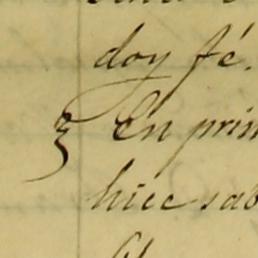 doy fé.
En prin
hice sab